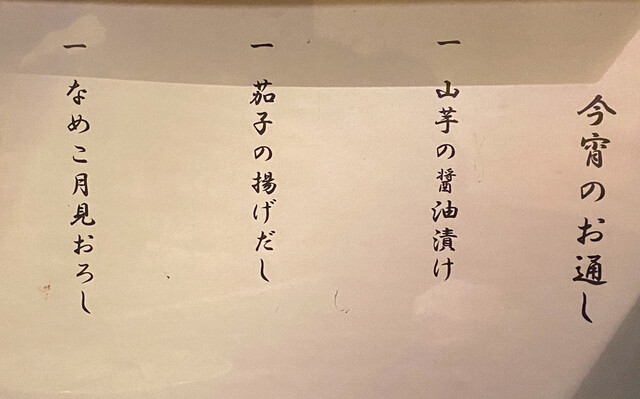 今宵のお通し
一 山芋の醤油漬け
一 茄子の揚げだし
一 なめこ月見おろし